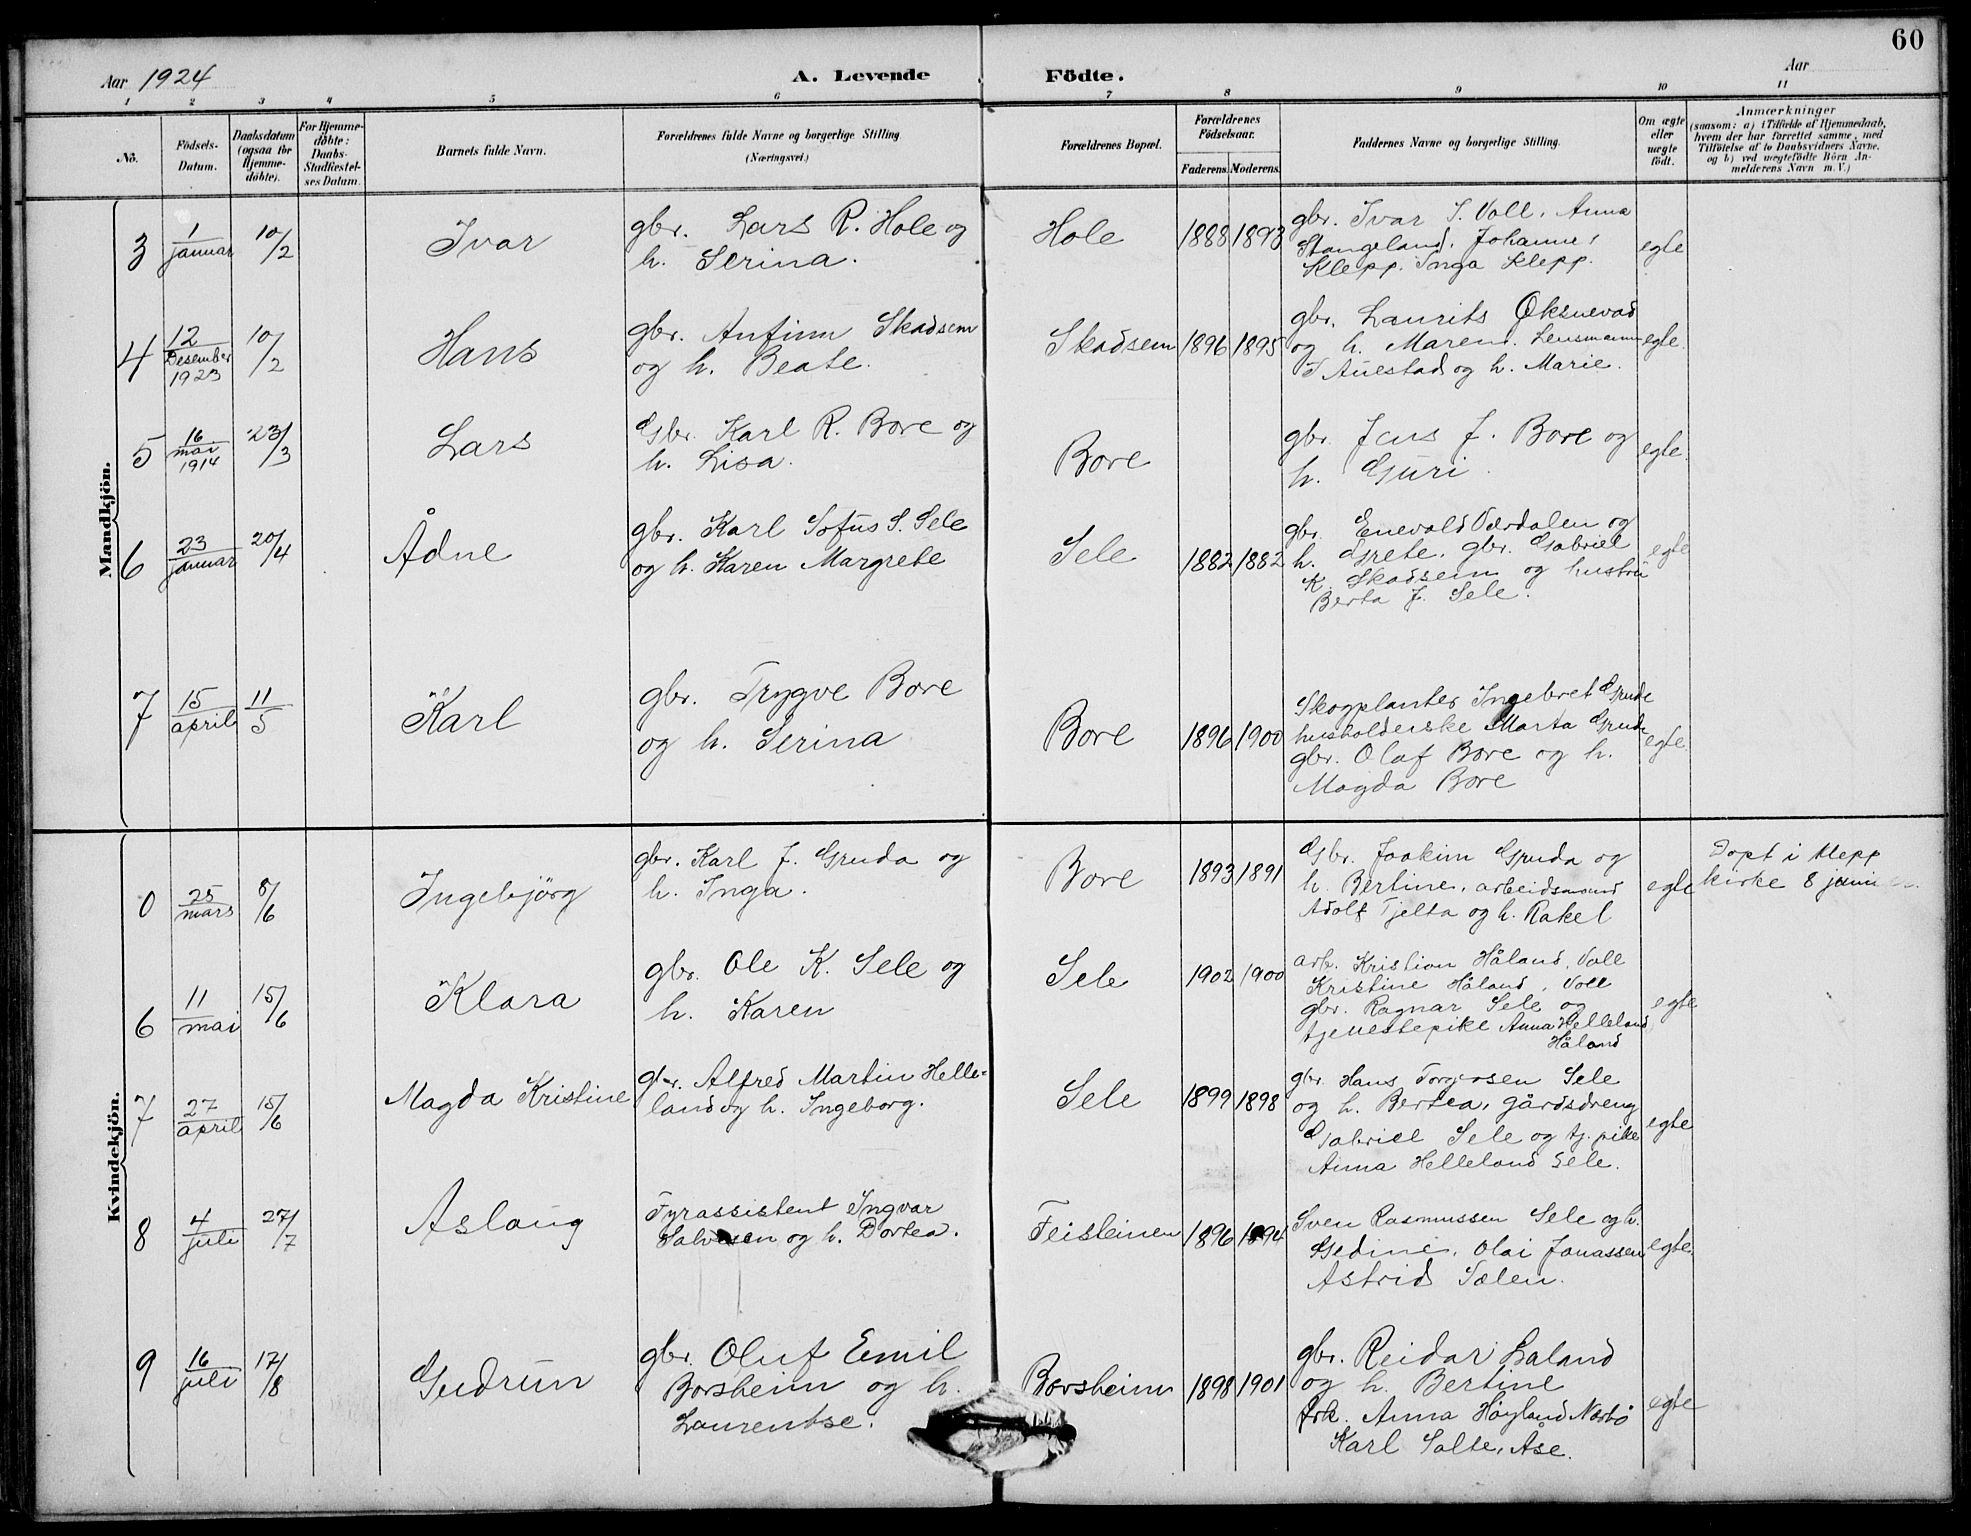 60
Aar 1924
A. Levende Födte.
Aar
1 2 3 4 5 6 7 8 9 10 11
No.
Födsels-
Datum.
Daabsdatum
(ogsaa for
Hjemme-
döbte).
For Hjemme-
döbte:
Daabs-
Stadfæstel-
ses Datum.
Barnets fulde Navn.
Forældrenes fulde Navne og borgerlige Stilling
(Næringsvei.)
Forældrenes Bopæl.
Forældrenes
Födselsaar.
Faderens. Moderens.
Faddernes Navne og borgerlige Stilling.
Om ægte
eller
uægte
født.
Anmærkninger
(saasom: a) i Tilfælde af Hjemmedaab,
hvem der har forrettet samme, med
Tilföielse af to Daabsvidners Navne.
og b) ved uægtefödte Börn An-
melderens Navn m.V.)
Mandkjön.
3
1
januar
10/2
Ivar
gbr. Lars R. Hole og
h. Serina.
Hole
1888 1893
gbr. Ivar S. Voll, Anna
Stangeland, Johannes
Klepp. Inga Klepp.
egte
4
12
Desember
1923
10/2
Hans
gbr. Anfinn Skadsem
og h. Beate.
Skadsem
1896 1895
gbr. Laurits Øksnevad
og h. Maren. Lensmann
T Auestad og h. Marie.
egte.
5
16
mai
1914
23/3
Lars
Gbr. Karl R. Bore og
h. Lisa.
Bore
gbr. Jens J. Bore og
h. Guri.
egte.
6
23
januar
20/4
Ådne
gbr. Karl Sofus S. Sele
og h. Karen Margrete
Sele
1882 1882
gbr. Enevald Værdalen og
h. Grete, gbr. Gabriel
K. Skadsem og hustru
Berta J. Sele.
egte
7
15
april
11
5
Karl
gbr. Trygve Bore
og h. Serina
Bore
1896 1900
Skogplanter Ingebret Grude
husholderske Marta Grude
gbr. Olaf Bore og h.
Magda Bore
egte.
Kvindekjön.
0
25
mars
8/6
Ingebjörg
gbr. Karl J. Gruda og
h. Inga.
Bore
1893 1891
Gbr. Joakim Gruda og
h. Bertine, arbeidsmand
Adolf Tjelta og h. Rakel
egte
Döpt i Klepp
kirke 8 juni
6
11
mai
15/6
Klara
gbr. Ole K. Sele og
h. Karen
Sele
1902 1900
arb. Kristian Håland, Voll
Kristine Håland, Voll
gbr. Ragnar Sele og
tjenestepike Anna Helleland
Håland
egte
7
27
april
15/6
Magda Kristine
gbr. Alfred Martin Helle-
land og h. Ingeborg.
Sele
1899 1898
gbr. Hans Torgersen Sele
og h. Bertea, gårdsdreng
Gabriel Sele og tj. pike
Anna Helleland Sele.
egte
8
4
juli
27/7
Aslaug
Fyrassistent Ingvar
Salvesen og h. Dortea.
Feisteinen
1896 1894
Sven Rasmussen Sele og h.
Gedine, Olai Jonassen
Astrid Salen.
egte.
9
16
juli
17/8
Gudrun
gbr. Oluf Emil
Borsheim og h.
Laurentse.
Borsheim
1898 1901
gbr. Reidar Laland
og h. Bertine
frk. Anna Høyland Nærbö
Karl Salte, Åse.
egte